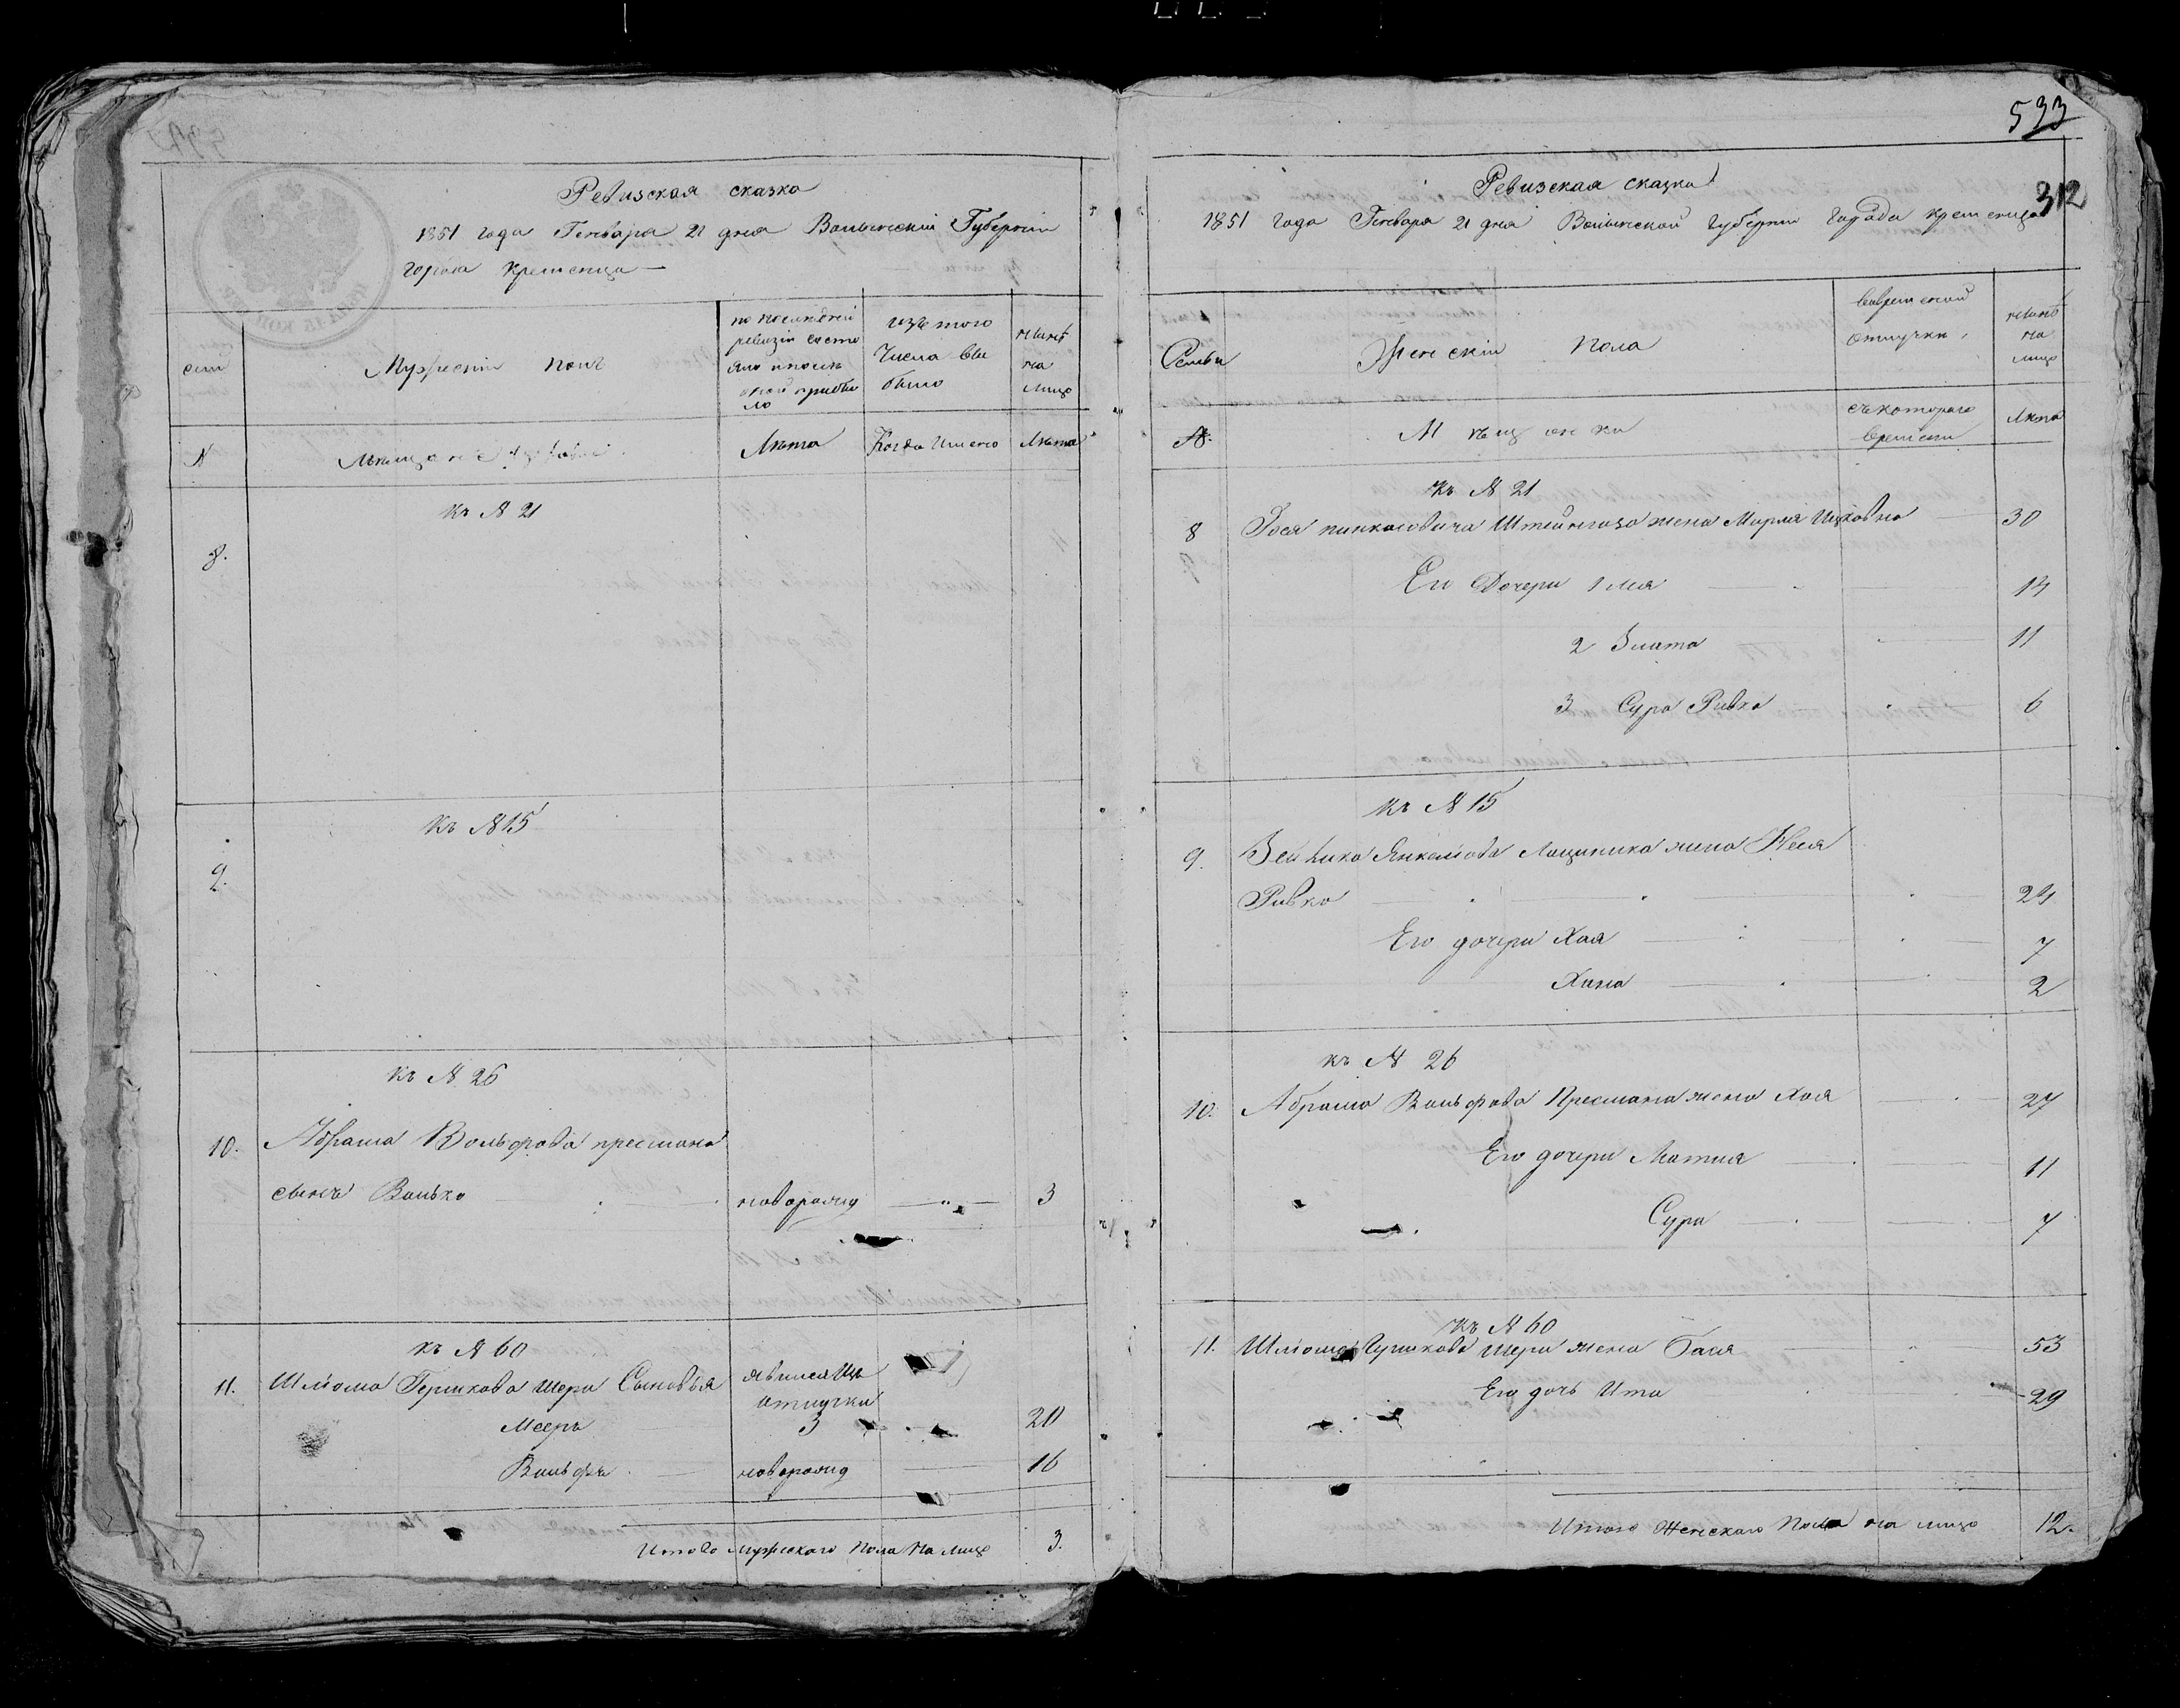 533
312
Ревизская сказка
1851 года Генваря 21 дня Волынской Губернии
города Кременца
Мужескій полъ
по последней
ревизіи состо
яло и после
оной прибы
ло
изъ того
Числа вы
было
ныне
на
лицо
N
Мещане
Лѣта
Когда Именно
Лѣта
Къ N 21
8.
Къ N 15
9.
Къ N 26
10. Абрама Вольфова Пресмана
сынъ Волько новорожд 3
Къ N 60
11. Шлёма Гершкова Шера Сыновья явился изъ
отлучки
Мееръ 3 20
Вольфъ новорожд 16
Итого мужескаго пола на лицо 3.
Ревизская сказка
1851 года Генваря 21 дня Волынской Губернии Города Кременца
Семьи
Женскій пола
временной
отлучки
ныне
на
лицо
N.
Мѣщанки
съ котораго
времени
Лета
Къ N 21
8 Пинкасовича Штейнгольца жена Мирля Ицковна 30
Его Дочери 1 Лея 14
2 Злата 11
3 Сура Ривка 6
Къ N 15
9. Зейлика Янкелёва Лащиника жена Неся
Ривка 24
Его дочери Хая 7
Хина 2
Къ N 26
10. Абрама Вольфова Пресмана жена Хая 27
Его дочери Матля 11
Сура 7
Къ N 60
11. Шлёма Гершкова Шера жена Бася 53
Его дочь Ита 29
Итого Женскаго Пола на лицо 12.